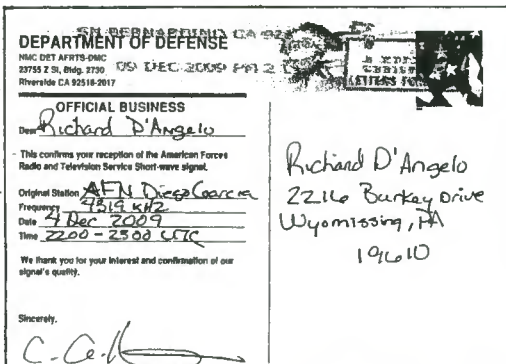 SN BERNARDINO CA 92
DEPARTMENT OF DEFENSE
NMC DET AFRTS-DMC
23755 Z St, Bldg. 2730
Riverside CA 92518-2017
09 DEC 2009 PM 2
OFFICIAL BUSINESS
Dear Richard D'Angelo
This confirms your reception of the American Forces
Radio and Television Service Short-wave signal.
Original Station AFN Diego Garcia
Frequency 4319 kHz
Date 4 Dec 2009
Time 2200 - 2300 UTC
We thank you for your interest and confirmation of our
signal's quality.
Sincerely,
Richard D'Angelo
2216 Burkey Drive
Wyomissing, PA
19610